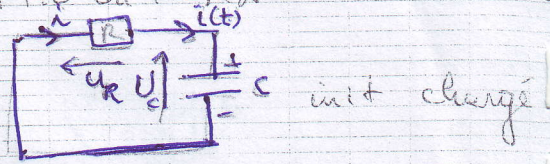 i i(t)
R
+
U_R U_c C init chargé
-